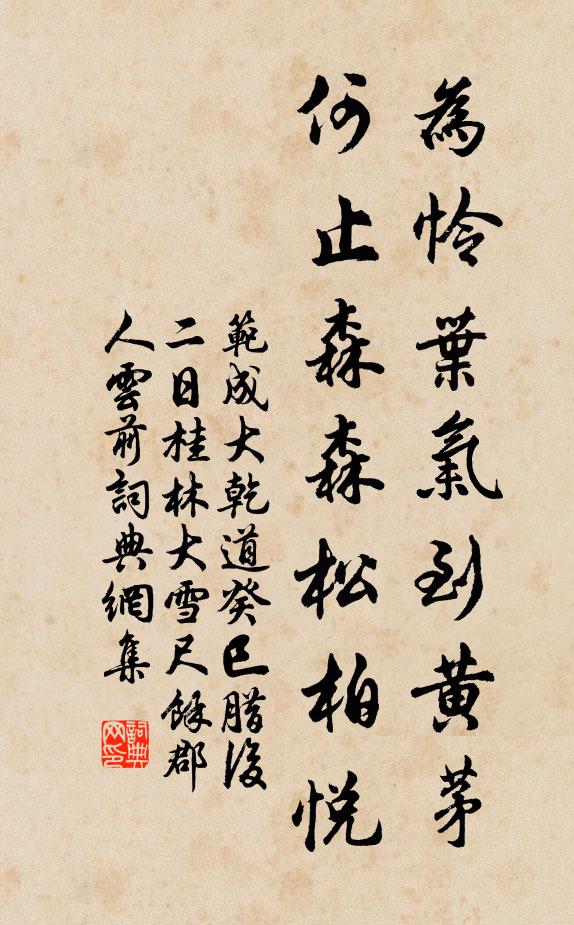 為怜葉氣到黃茅
何止森森松柏悅
範成大乾道癸巳腊後
二日桂林大雪尺餘郡
人雲前詞典網集
詞典網印